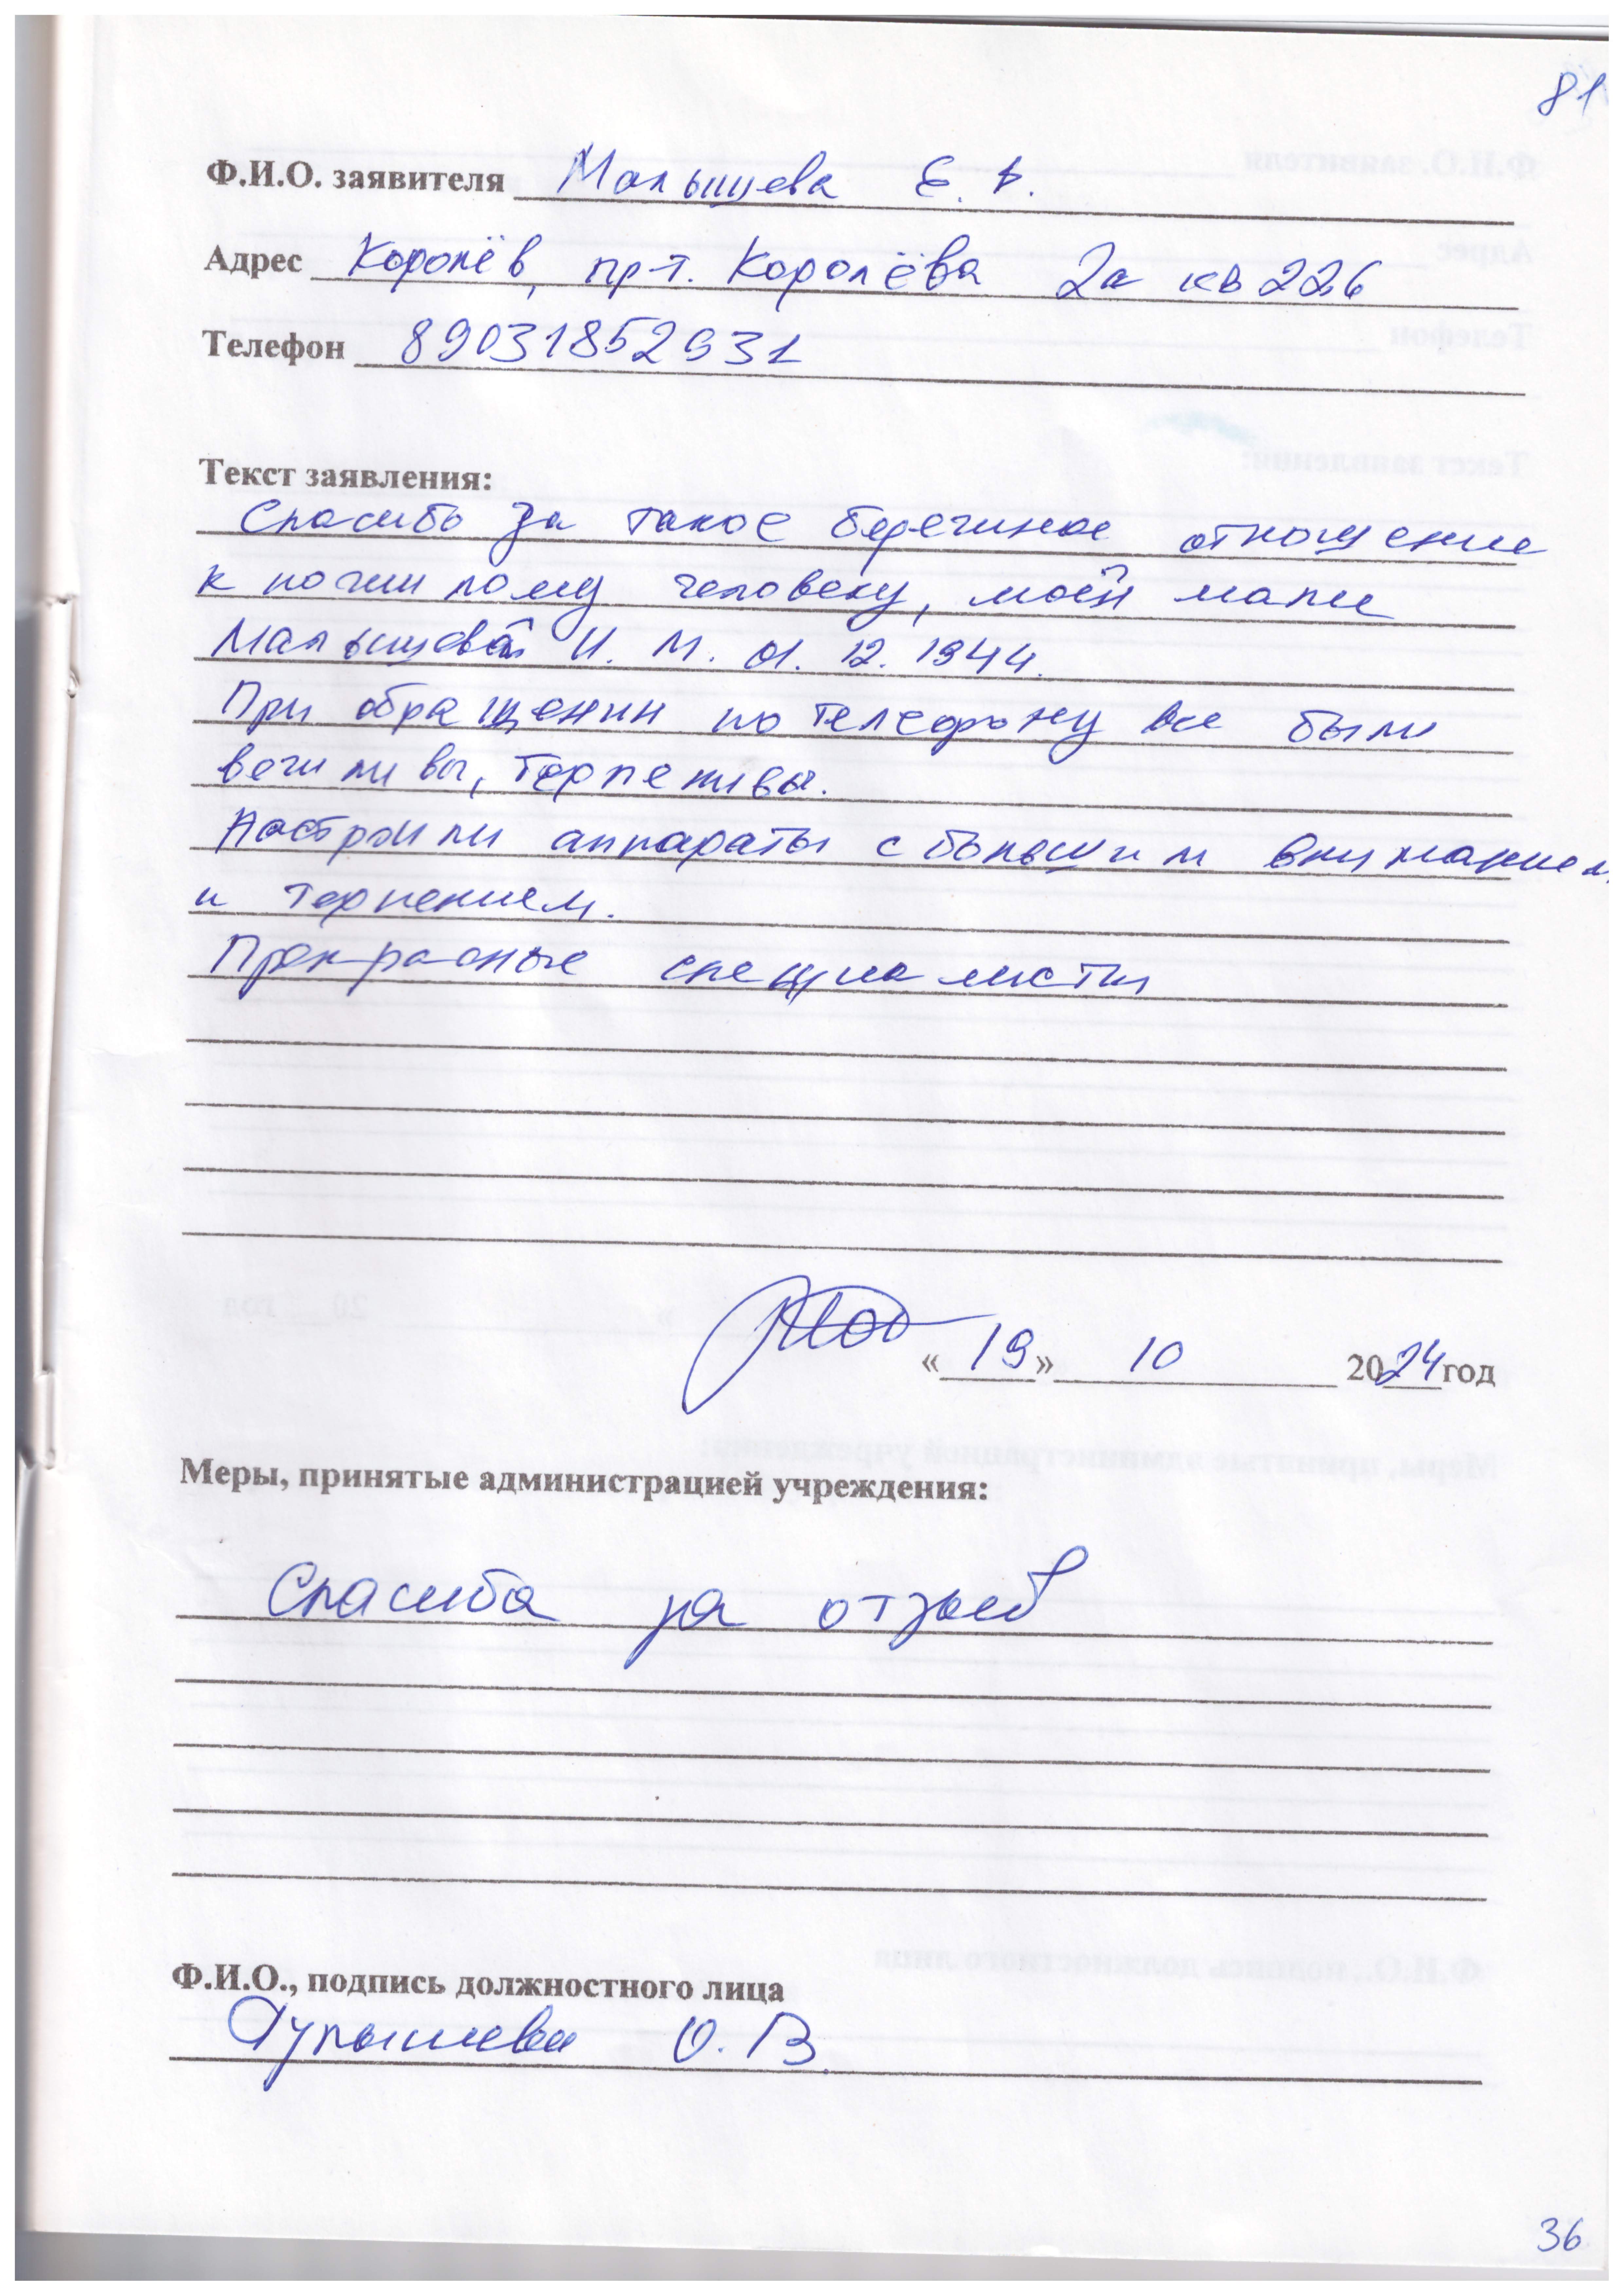 81
Ф.И.О. заявителя Малышева Е. В.
Адрес Королёв, пр-т. Королёва 2а кв 226
Телефон 89031852931
Текст заявления:
Спасибо за такое беречиное отношение
к пожилому человеку, моей маме
Малышевой И. М. 01. 12. 1944.
При обращении по телефону все были
вежливы, терпеливы.
Настроили аппараты с большим вниманием
и терпением.
Прекрасные специалисты
«19» 10 2024 год
Меры, принятые администрацией учреждения:
Спасибо за отзыв
Ф.И.О., подпись должностного лица
О. В.
36